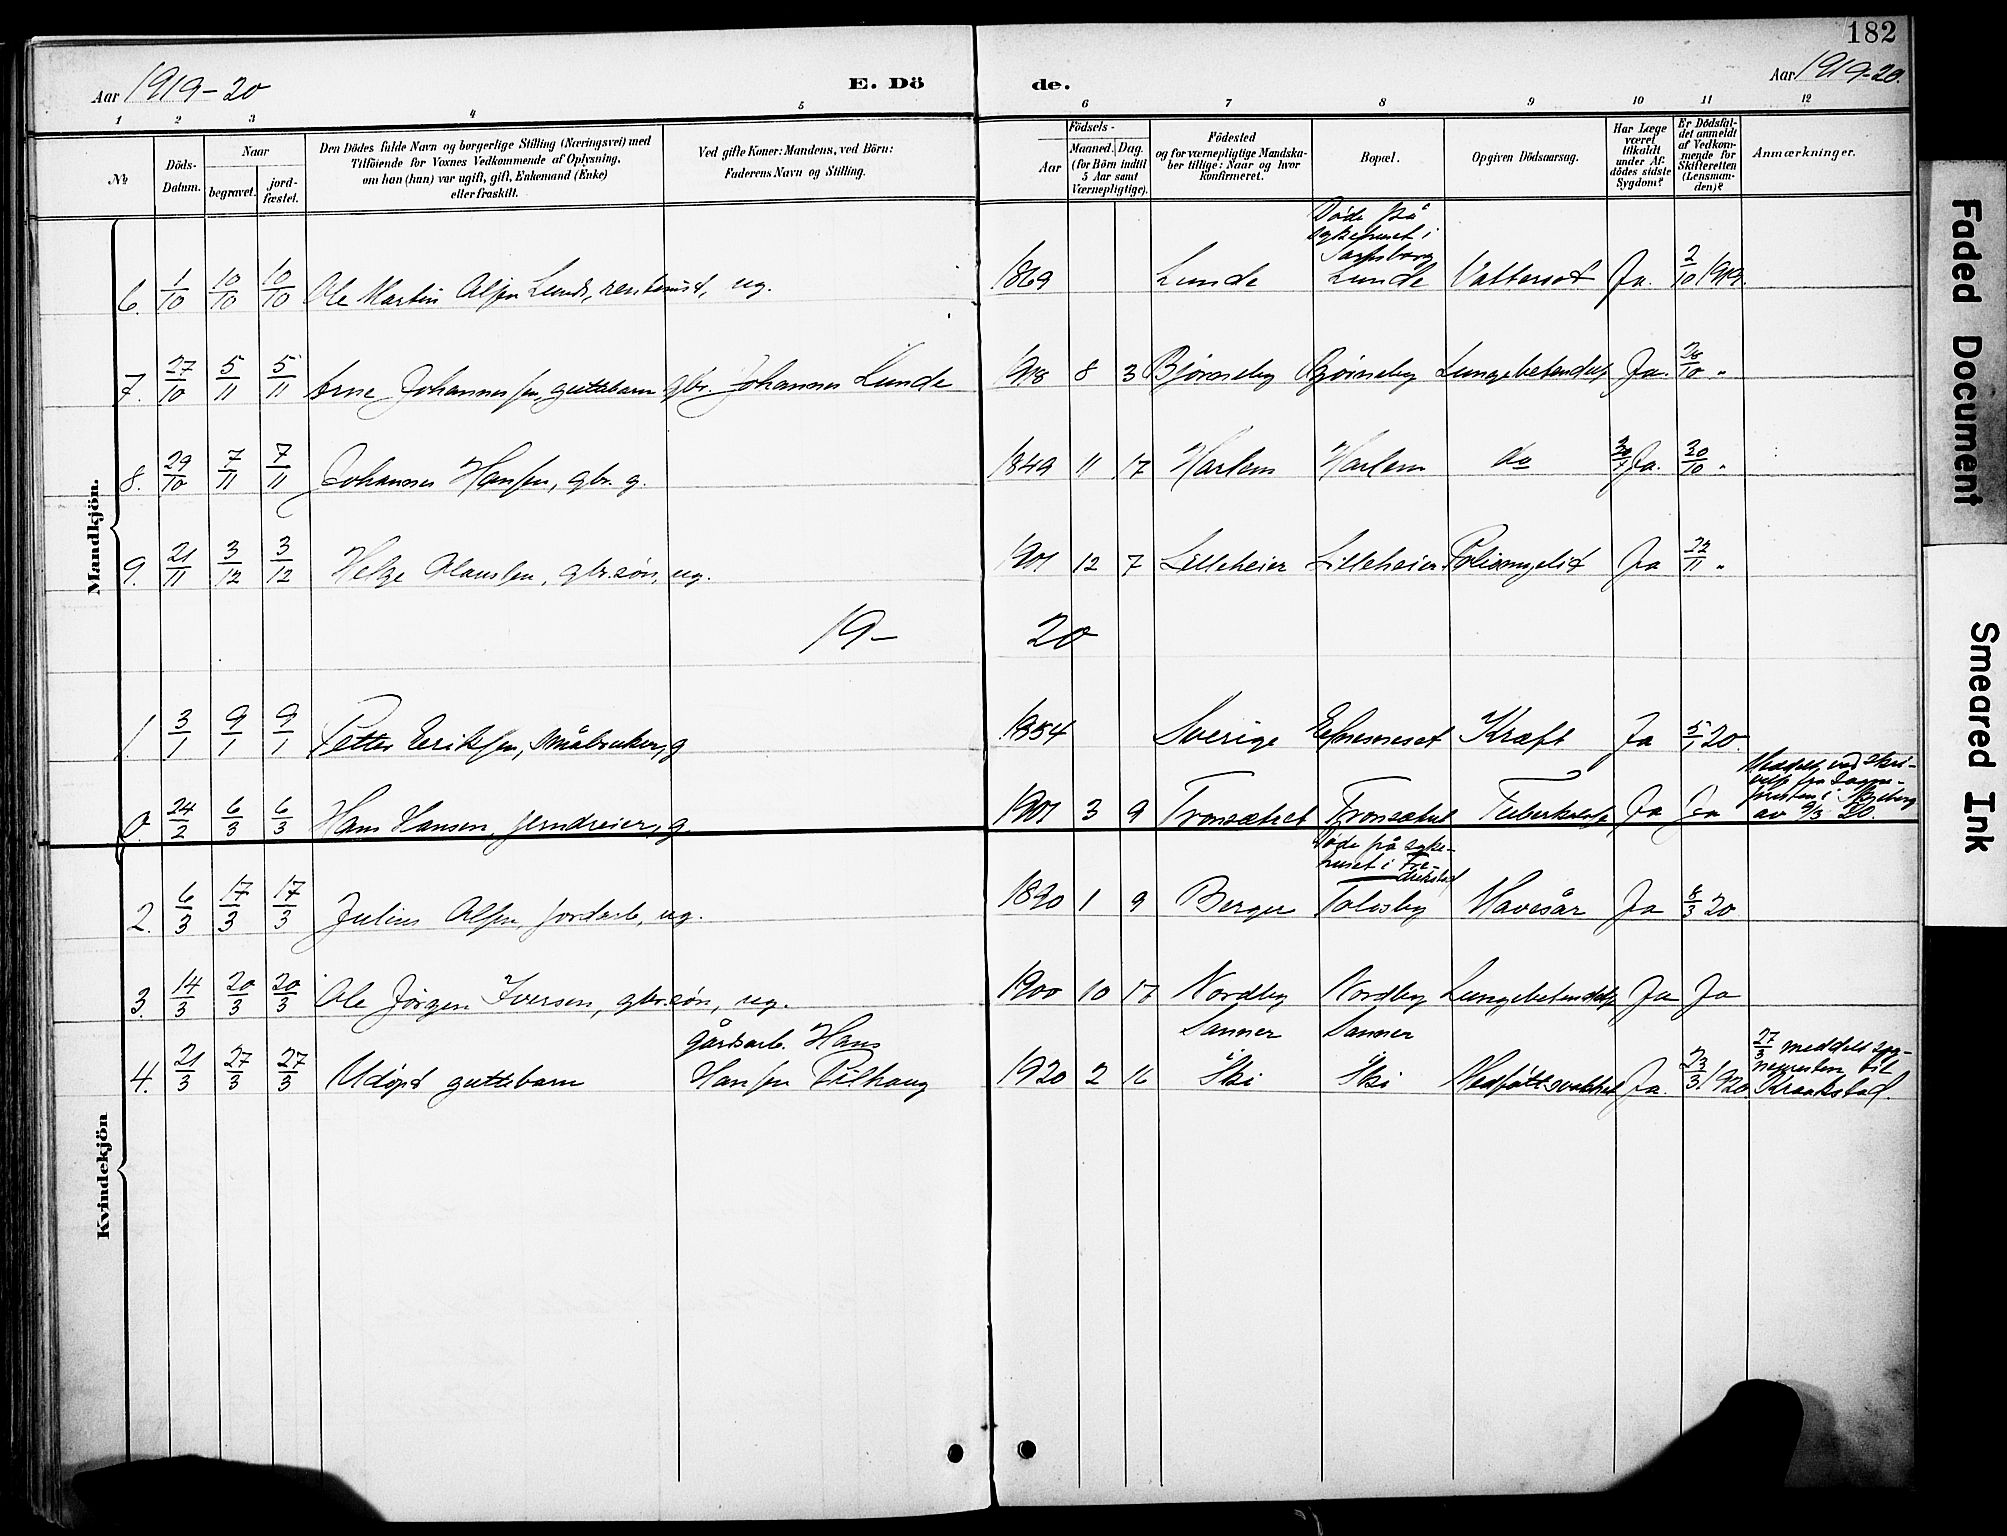 182
Aar 1919-20
E. Dö
de.
Aar 1919-20.
1 2 3 4 5 6 7 8 9 10 11 12
№
Döds-Datum.
Naar
begravet.
jord-fæstet.
Den Dödes fulde Navn og borgerlige Stilling (Næringsvei) med
Tilföiende for Voxnes Vedkommende af Oplysning,
om han (hun) var ugift, gift, Enkemand (Enke)
eller fraskilt.
Ved gifte Koner: Mandens, ved Börn:
Faderens Navn og Stilling.
Födsels-
Aar
Maaned. Dag.
(for Börn indtil
5 Aar samt
Værnepligtige).
Födested
og for værnepligtige Mandska-
ber tillige: Naar og hvor
Konfirmeret.
Bopæl.
Opgiven Dödsaarsag.
Har Læge
været
tilkaldt
under Af-
dödes sidste
Sygdom?
Er Dödsfal-
det anmeldt
af Vedkom-
mende for
Skifteretten
(Lensman-
den)?
Anmærkninger.
Mandkjön.
6. 1/10 10/10 10/10 Ole Martin Olsen Lunde, ug. 1869 Lunde Døde på sykehuset i Sarpsborg Lunde Vattersot Ja. 2/10 1919.
7. 27/10 5/11 5/11 Arne Johannessen, guttebarn gbr. Johannes Lunde 1918 8 3 Bjørneby Bjørneby Lungebetendelse Ja. 28/10 "
8. 29/10 7/11 7/11 Johannes Hansen, gbr. g. 1849 11 17 Harlem Harlem do Ja. 30/10 "
9. 21/11 3/12 3/12 Helge Olaussen, gbr.søn, ug. 1901 12 7 Lilleheier Lilleheier Poliomyelit Ja 22/11 "
19-20
1. 3/1 9/1 9/1 Petter Eriksen, småbruker, g 1854 Sverige Kræft Ja 5/1 20.
0. 24/2 6/3 6/3 Hans Hansen, jerndreier, g. 1901 3 9 Tronsætret Tronsætret Tuberkulose Ja Ja Meddelt ved skri-velse fra Sogne-presten i Skjeberg av 9/3 20.
2. 6/3 17/3 17/3 Julius Olsen, jordarb., ug. 1890 1 9 Berger Døde på syke-huset i Fre-drikstad Tolesby Ja 8/3 20
3. 14/3 20/3 20/3 Ole Jörgen Iversen, gbr.søn, ug. 1900 10 17 Nordby Sanner Nordby Sanner Lungebetendelse Ja Ja
4. 21/3 27/3 27/3 Udøpt guttebarn gårdsarb. Hans Hansen Pilhaug 1920 2 16 Ski Ski Medfødt svakhet Ja. 23/3 1920 27/3 meddelt sog-nepresten til Kraakstad.
Kvindekjön
Faded Document
Smeared Ink